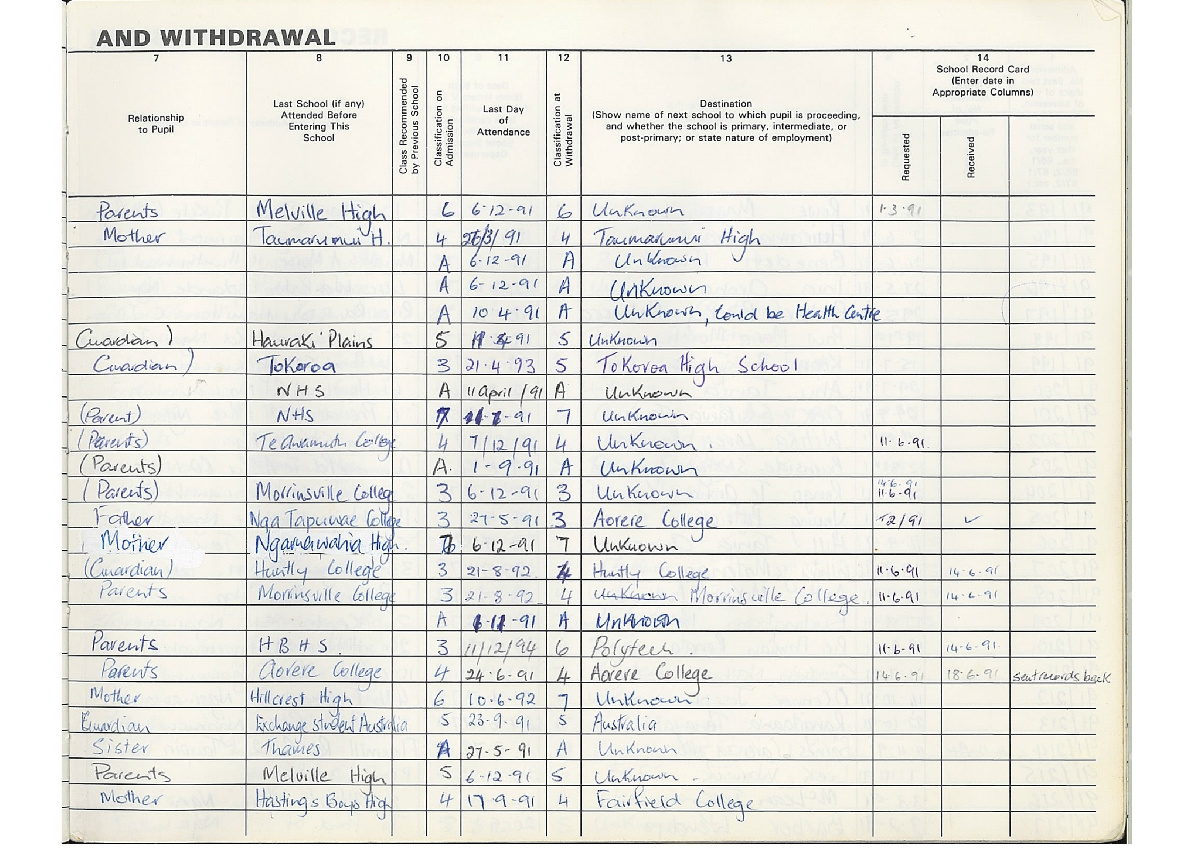 AND WITHDRAWAL
7 8 9 10 11 12 13 14
Relationship to Pupil
Last School (if any) Attended Before Entering This School
Class Recommended by Previous School
Classification on Admission
Last Day of Attendance
Classification at Withdrawal
Destination
(Show name of next school to which pupil is proceeding, and whether the school is primary, intermediate, or post-primary; or state nature of employment)
School Record Card
(Enter date in Appropriate Columns)
Requested
Received
Parents Melville High 6 6-12-91 6 UnKnown 1-3-91
Mother Taumarunui H. 4 26/3/91 4 Taumarunui High
A 6-12-91 A UnKnown
A 6-12-91 A UnKnown
A 10-4-91 A UnKnown, Could be Health Centre
Guardian) Hauraki Plains 5 91 5 UnKnown
Guardian) ToKoroa 3 21-4-93 5 ToKoroa High School
NHS A 11 April /91 A UnKnown
(Parent) NHS 7 91 7 UnKnown
(Parents) Te Awamutu College 4 7/12/91 4 UnKnown. 11-6-91
(Parents) A. 1-9-91 A UnKnown
(Parents) Morrinsville College 3 6-12-91 3 UnKnown 14-6-91 11-6-91
Father Nga Tapuwae College 3 27-5-91 3 Aorere College 2/91 ✓
Mother Ngaruawahia High. 7 6-12-91 7 UnKnown
(Guardian) Huntly College 3 21-8-92 4 Huntly College 11-6-91 14-6-91
Parents Morrinsville College 3 21-8-92 4 UnKnown Morrinsville College. 11-6-91 14-6-91
A 91 A UnKnown
Parents HBHS. 3 11/12/94 6 Polytech. 11-6-91 14-6-91
Parents Aorere College 4 24-6-91 4 Aorere College 14-6-91 18-6-91 sent records back
Mother Hillcrest High 6 10-6-92 7 UnKnown
Guardian Exchange student Australia 5 23-9-91 5 Australia
Sister Thames A 27-5-91 A UnKnown
Parents Melville High 5 6-12-91 5 UnKnown
Mother Hastings Boys High 4 17-9-91 4 Fairfield College